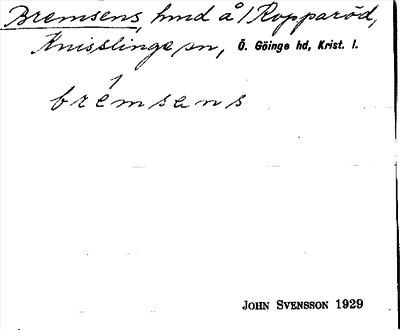 Bremsens, hmd å 1 Ropparöd,
Knisslinge sn, Ö. Göinge hd, Krist. l.
bremsens
JOHN SVENSSON 1929